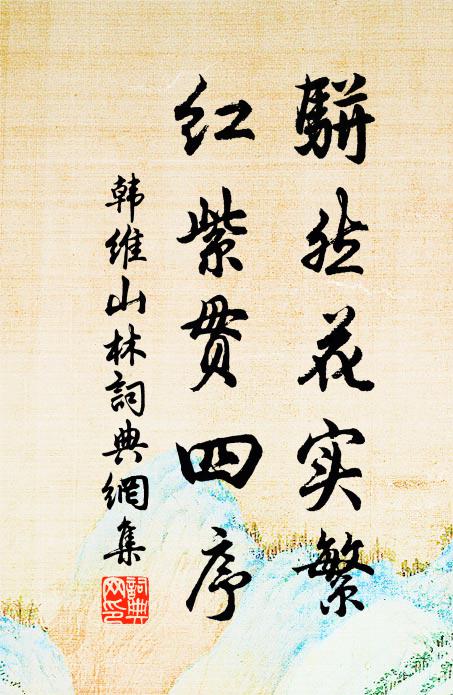 騈然花实繁
红紫贯四序
韩维山林詞典網集
詞典
网印